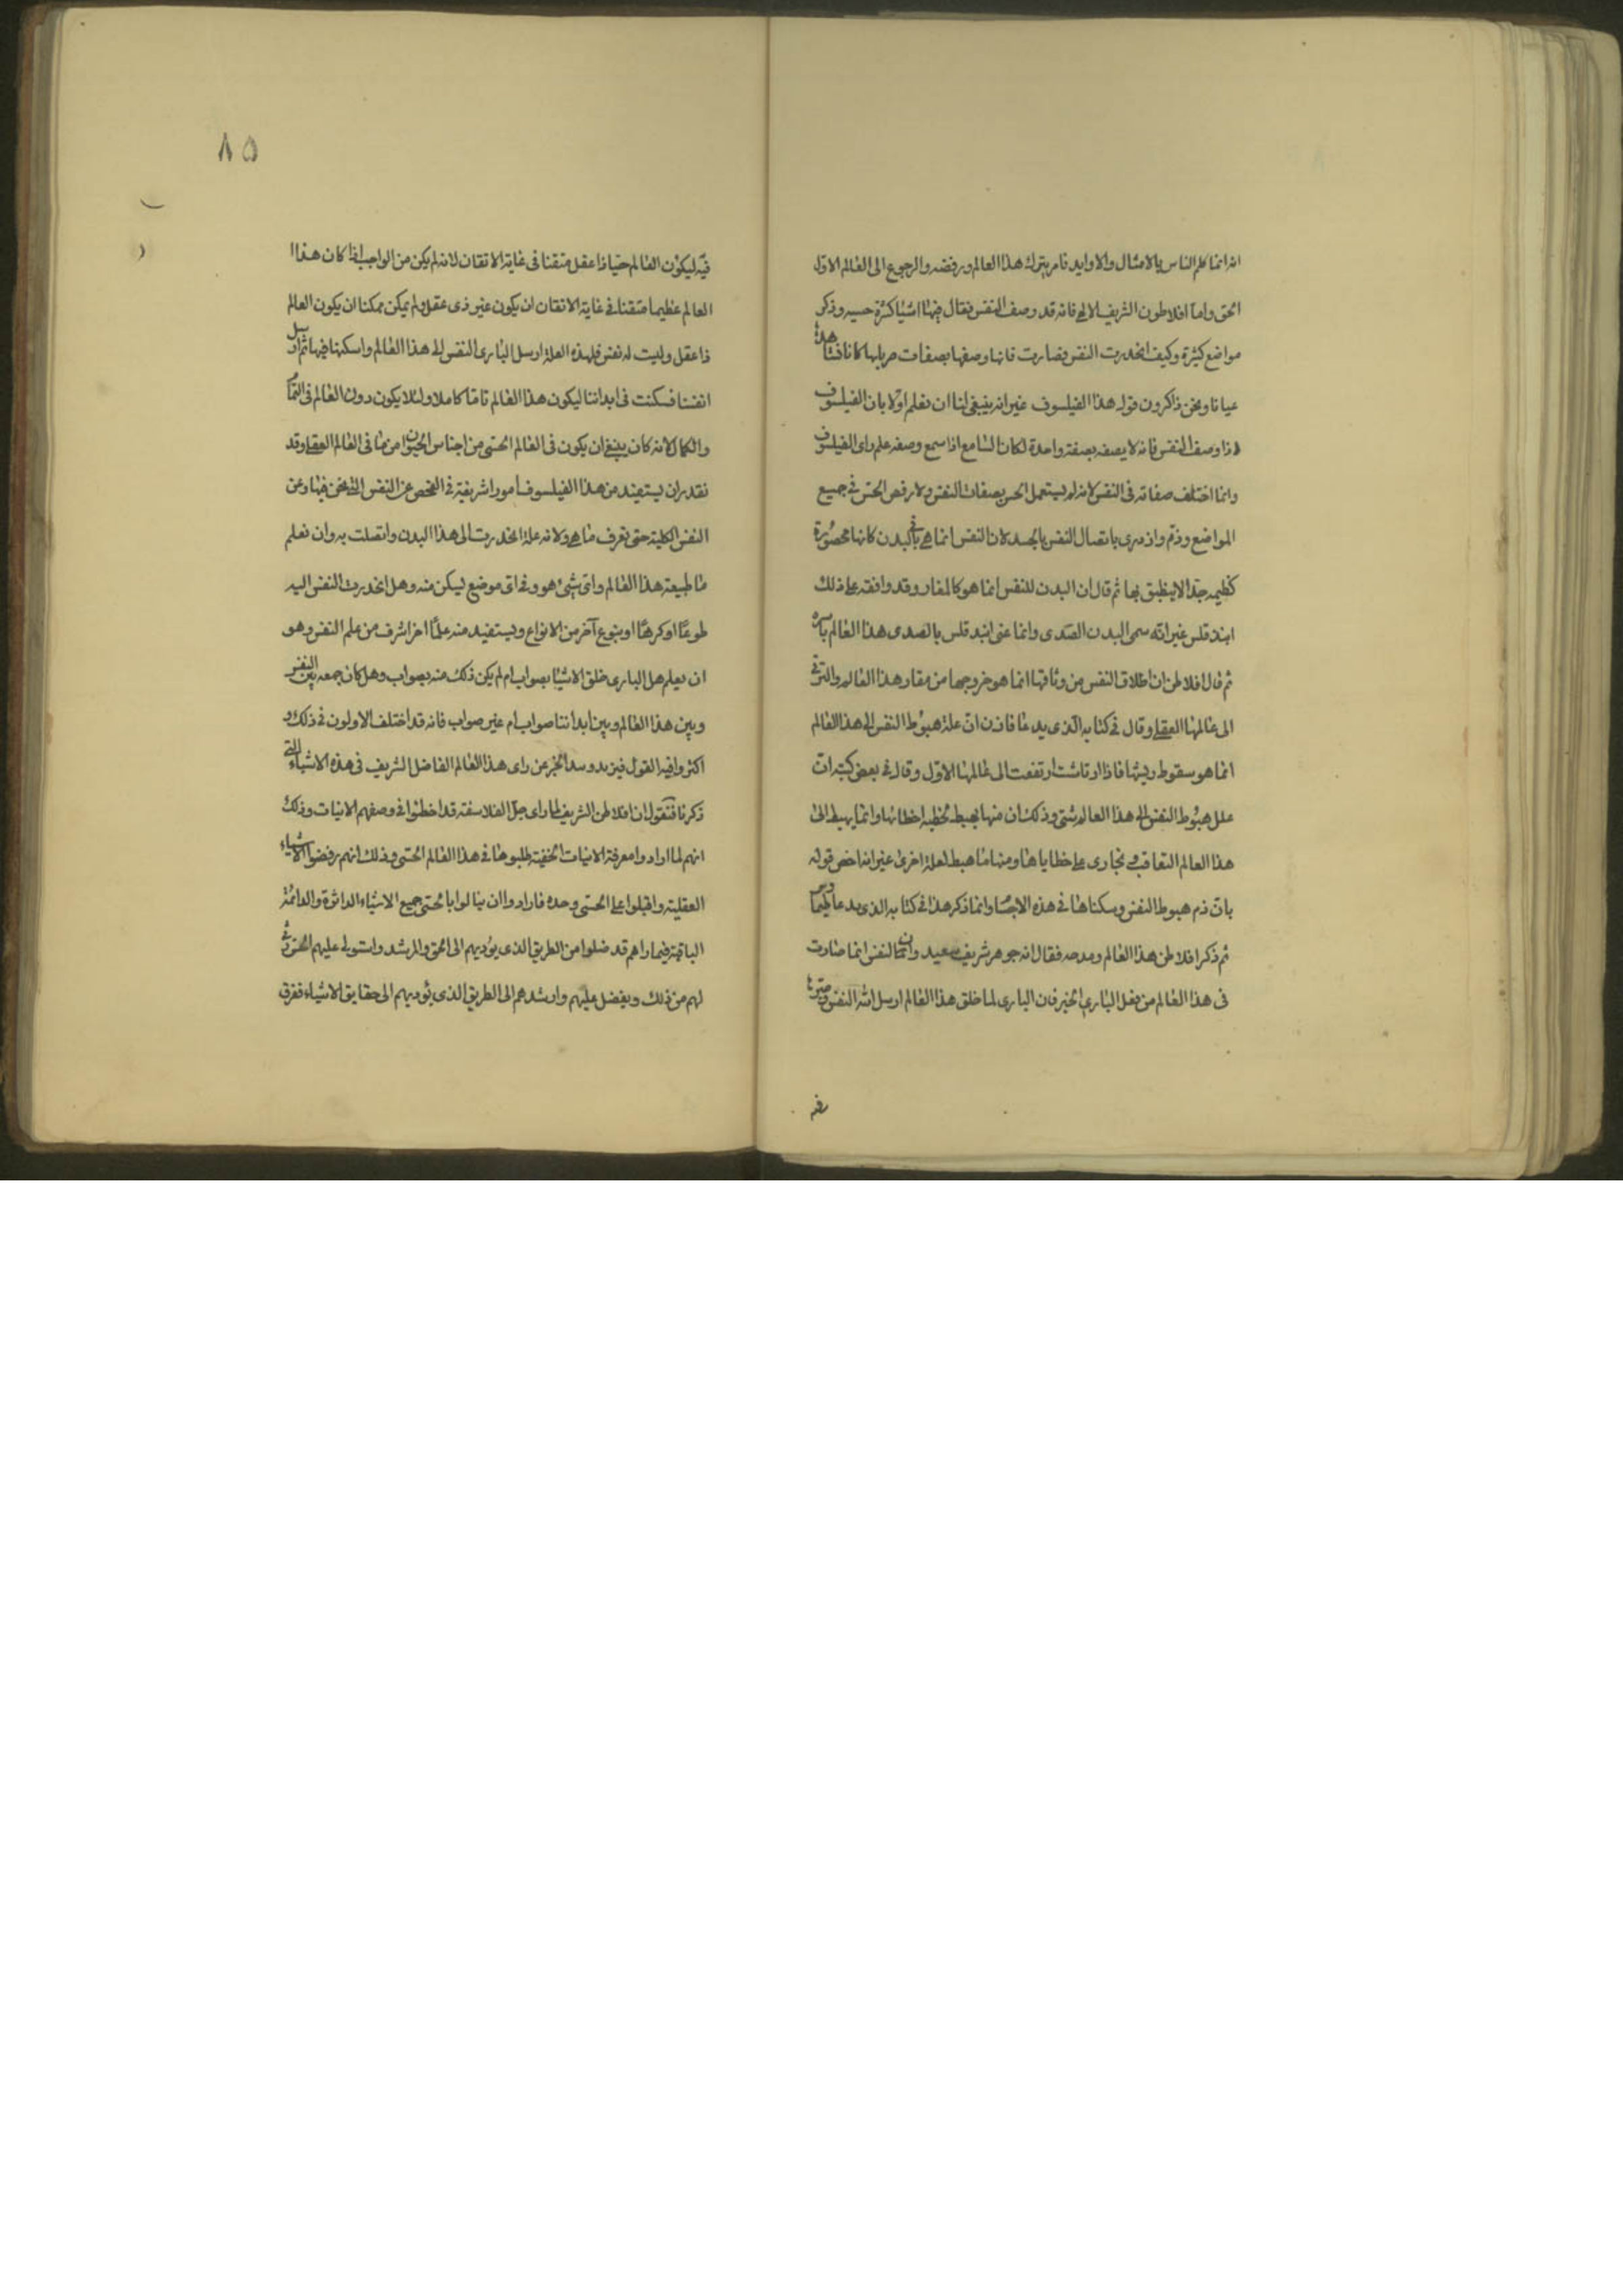 انه انما كلم الناس بالامثال والاوابد فامر بترك هذا العالم ورفضه والرجوع الى العالم الاول
الحق واما افلاطون الشريف الالهى فانه قد وصف النفس فقال فيها اشياء كثيرة حسنه وذكر
مواضع كثيرة وكيف انحدرت النفس فصارت فانها وصفها بصفات صربلها كانا نشاهدها
عيانا ونحن ذاكرون قول هذا الفيلسوف غير انه ينبغى لنا ان نعلم اولا بان الفيلسوف
اذا وصف النفس فانه لا يصفه بصفة واحدة لكان السامع اذا سمع وصفه علم راى الفيلسوف
وانما اختلف صفاته فى النفس لانه لم يستعمل الحس بصفات النفس ولا رفض الحس فى جميع
المواضع وذم وازدرى باتصال النفس بالجسد لان النفس انما هى فى البدن كانها محصورة
كظيمه جدا لا ينطبق بها ثم قال ان البدن للنفس انما هو كالمغار وقد وافقه على ذلك
ابندقلس غير انه سمى البدن الصدى وانما عنى انبدقلس بالصدى هذا العالم باسره
ثم قال افلاطن ان اطلاق النفس من وثاقها انما هو خروجها من مغار هذا العالم والترقى
الى عالمها العقلى وقال فى كتابه الذى يدعا فاذن ان علة هبوط النفس الى هذا العالم
انما هو سقوط ريشها فاذا ارتاشت ارتفعت الى عالمها الاول وقال فى بعض كتبه ان
علل هبوط النفس الى هذا العالم شتى وذلك ان منها يهبط لخطيه اخطاتها وانما يهبط الى
هذا العالم التعاقب وتجازى على خطاياها ومنها ما هبط لعلة اخرى غير انه اختص قوله
بان ذم هبوط النفس وسكناها فى هذه الاجسام وانما ذكر هذا فى كتابه الذى يدعا طيماوس
ثم ذكر افلاطن هذا العالم ومدحه فقال انه جوهر شريف سعيد وان النفس انما صارت
فى هذا العالم من فعل البارى الخير فان البارى لما خلق هذا العالم ارسل اليه النفس وصيرها
فيه
٨٥
فيه ليكون العالم حيا ذا عقل متقنا فى غاية الاتقان لانه لم يكن من الواجب اذا كان هذا
العالم عظيما متقنا فى غاية الاتقان ان يكون غير ذى عقل ولم يمكن ممكنا ان يكون العالم
ذا عقل وليت له نفس فلهذه العلة ارسل البارى النفس الى هذا العالم واسكنها فيها ثم ارسل
انفسنا فسكنت فى ابداننا ليكون هذا العالم تاما كاملا ولئلا يكون دون العالم فى التمام
والكمال لانه كان ينبغى ان يكون فى العالم الحسى من اجناس الحيوان ما فى العالم العقلى وقد
نقدر ان يستفيد من هذا الفيلسوف امورا شريفة فى الفحص عن النفس التى نحن فيها وعن
النفس الكلية حتى نعرف ما هى ولانه علة انحدرت الى هذا البدن واتصلت به وان نعلم
ما طبيعة هذا العالم واى شىء هو وفى اى موضع ليكن منه وهل انحدرت النفس اليه
طوعا او كرها او بنوع آخر من الانواع ويستفيد منه علما اخر اشرف من علم النفس وهو
ان يعلم هل البارى خلق الاشياء بصواب ام لم يكن ذلك منه بصواب وهل كان جمعه بين النفس
وبين هذا العالم وبين ابداننا صواب ام غير صواب فانه قد اختلف الاولون فى ذلك و
اكثروا فيه القول فيزيد وسد الخبر عن راى هذا العالم الفاضل الشريف فى هذه الاشياء التى
ذكرنا فنقول ان افلاطن الشريف لما راى جل الفلاسفة قد اخطئوا فى وصفهم الانيات وذلك
انهم لما ارادوا معرفة الانيات الخفية طلبوها فى هذا العالم الحسى وذلك انهم رفضوا الاشياء
العقلية واقبلوا على الحسى وحده فارادوا ان ينالوا بالحسى جميع الاشياء الداثرة والدائمة
الباقية فيما راهم قد ضلوا من الطريق الذى يؤديهم الى الحق والرشد واستولى عليهم الحس رثى
لهم من ذلك وبفضل عليهم وارشدهم الى الطريق الذى يؤديهم الى حقايق الاشياء ففرق